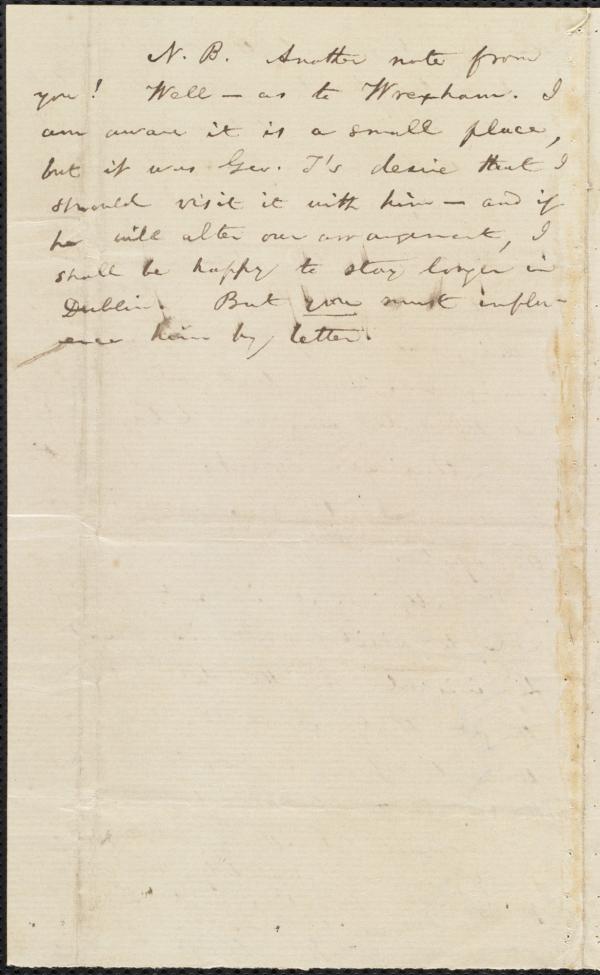 N. B. Another note from
you! Well — as to Wrexham. I
am aware it is a small place,
but it was Geo. T's desire that I
should visit it with him — and if
he will alter our arrangement, I
shall be happy to stay longer in
Dublin. But you must influ-
ence him by letter.